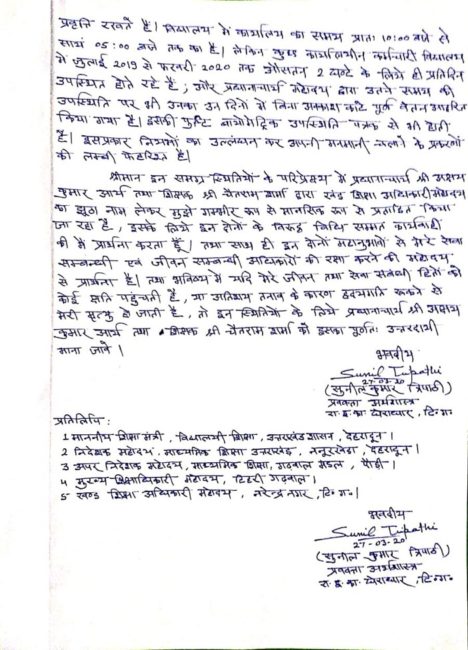 प्रवृति रखते हैं। विद्यालय में कार्यालय का समय प्रातः 10:00 बजे से
सायं 05:00 बजे तक का है। लेकिन कुछ कार्यालयीन कर्मचारी विद्यालय
में जुलाई 2019 से फरवरी 2020 तक औसतन 2 घण्टे के लिये ही प्रतिदिन
उपस्थित होते रहे हैं, और प्रधानाचार्य महोदय द्वारा उतने समय की
उपस्थिति पर भी उनका उन दिनों में बिना अवकाश काटे पूर्ण वेतन आहरित
किया गया है। इसकी पुष्टि बायोमैट्रिक उपस्थिति पत्रक से भी होती
है। इसप्रकार नियमों का उल्लंघन कर अपनी मनमानी चलाने के प्रकरणों
की लम्बी फेहरिस्त है।
श्रीमान इन समग्र स्थितियों के परिप्रेक्ष्य में प्रधानाचार्य श्री अक्षय
कुमार आर्य तथा शिक्षक श्री चैतराम शर्मा द्वारा खंड शिक्षा अधिकारी महोदय
का झूठा नाम लेकर मुझे गम्भीर रूप से मानसिक रूप से प्रताड़ित किया
जा रहा है, इसके लिये इन दोनों के विरुद्ध विधि सम्मत कार्यवाही
की मैं प्रार्थना करता हूँ। तथा साथ ही इन दोनों महानुभावों से मेरे सेवा
सम्बन्धी एवं जीवन सम्बन्धी अधिकारों की रक्षा करने की महोदय
से प्रार्थना है। तथा भविष्य में यदि मेरे जीवन तथा सेवा संबंधी हितों को
कोई क्षति पहुंचती है, या अतिशय तनाव के कारण हृदयगति रूकने से
मेरी मृत्यु हो जाती है, तो इन स्थितियों के लिये प्रधानाचार्य श्री अक्षय
कुमार आर्य तथा शिक्षक श्री चैतराम शर्मा को इसका पूर्णतः उत्तरदायी
माना जावे।
भवदीय
Sunil Tripathi
27-03-20
(सुनील कुमार त्रिपाठी)
प्रवक्ता अर्थशास्त्र
रा.इ.का. टि०ग०
प्रतिलिपि:
1 माननीय शिक्षा मंत्री, विद्यालयी शिक्षा, उत्तराखंड शासन, देहरादून।
2 निदेशक महोदय, माध्यमिक शिक्षा उत्तराखंड, ननूरखेड़ा, देहरादून।
3 अपर निदेशक महोदय, माध्यमिक शिक्षा, गढ़वाल मंडल, पौड़ी।
4 मुख्य शिक्षाधिकारी महोदय, टिहरी गढ़वाल।
5 खण्ड शिक्षा अधिकारी महोदय, नरेन्द्र नगर, टि०ग०।
भवदीय
Sunil Tripathi
27-03-20
(सुनील कुमार त्रिपाठी)
प्रवक्ता अर्थशास्त्र
रा.इ.का. टि०ग०